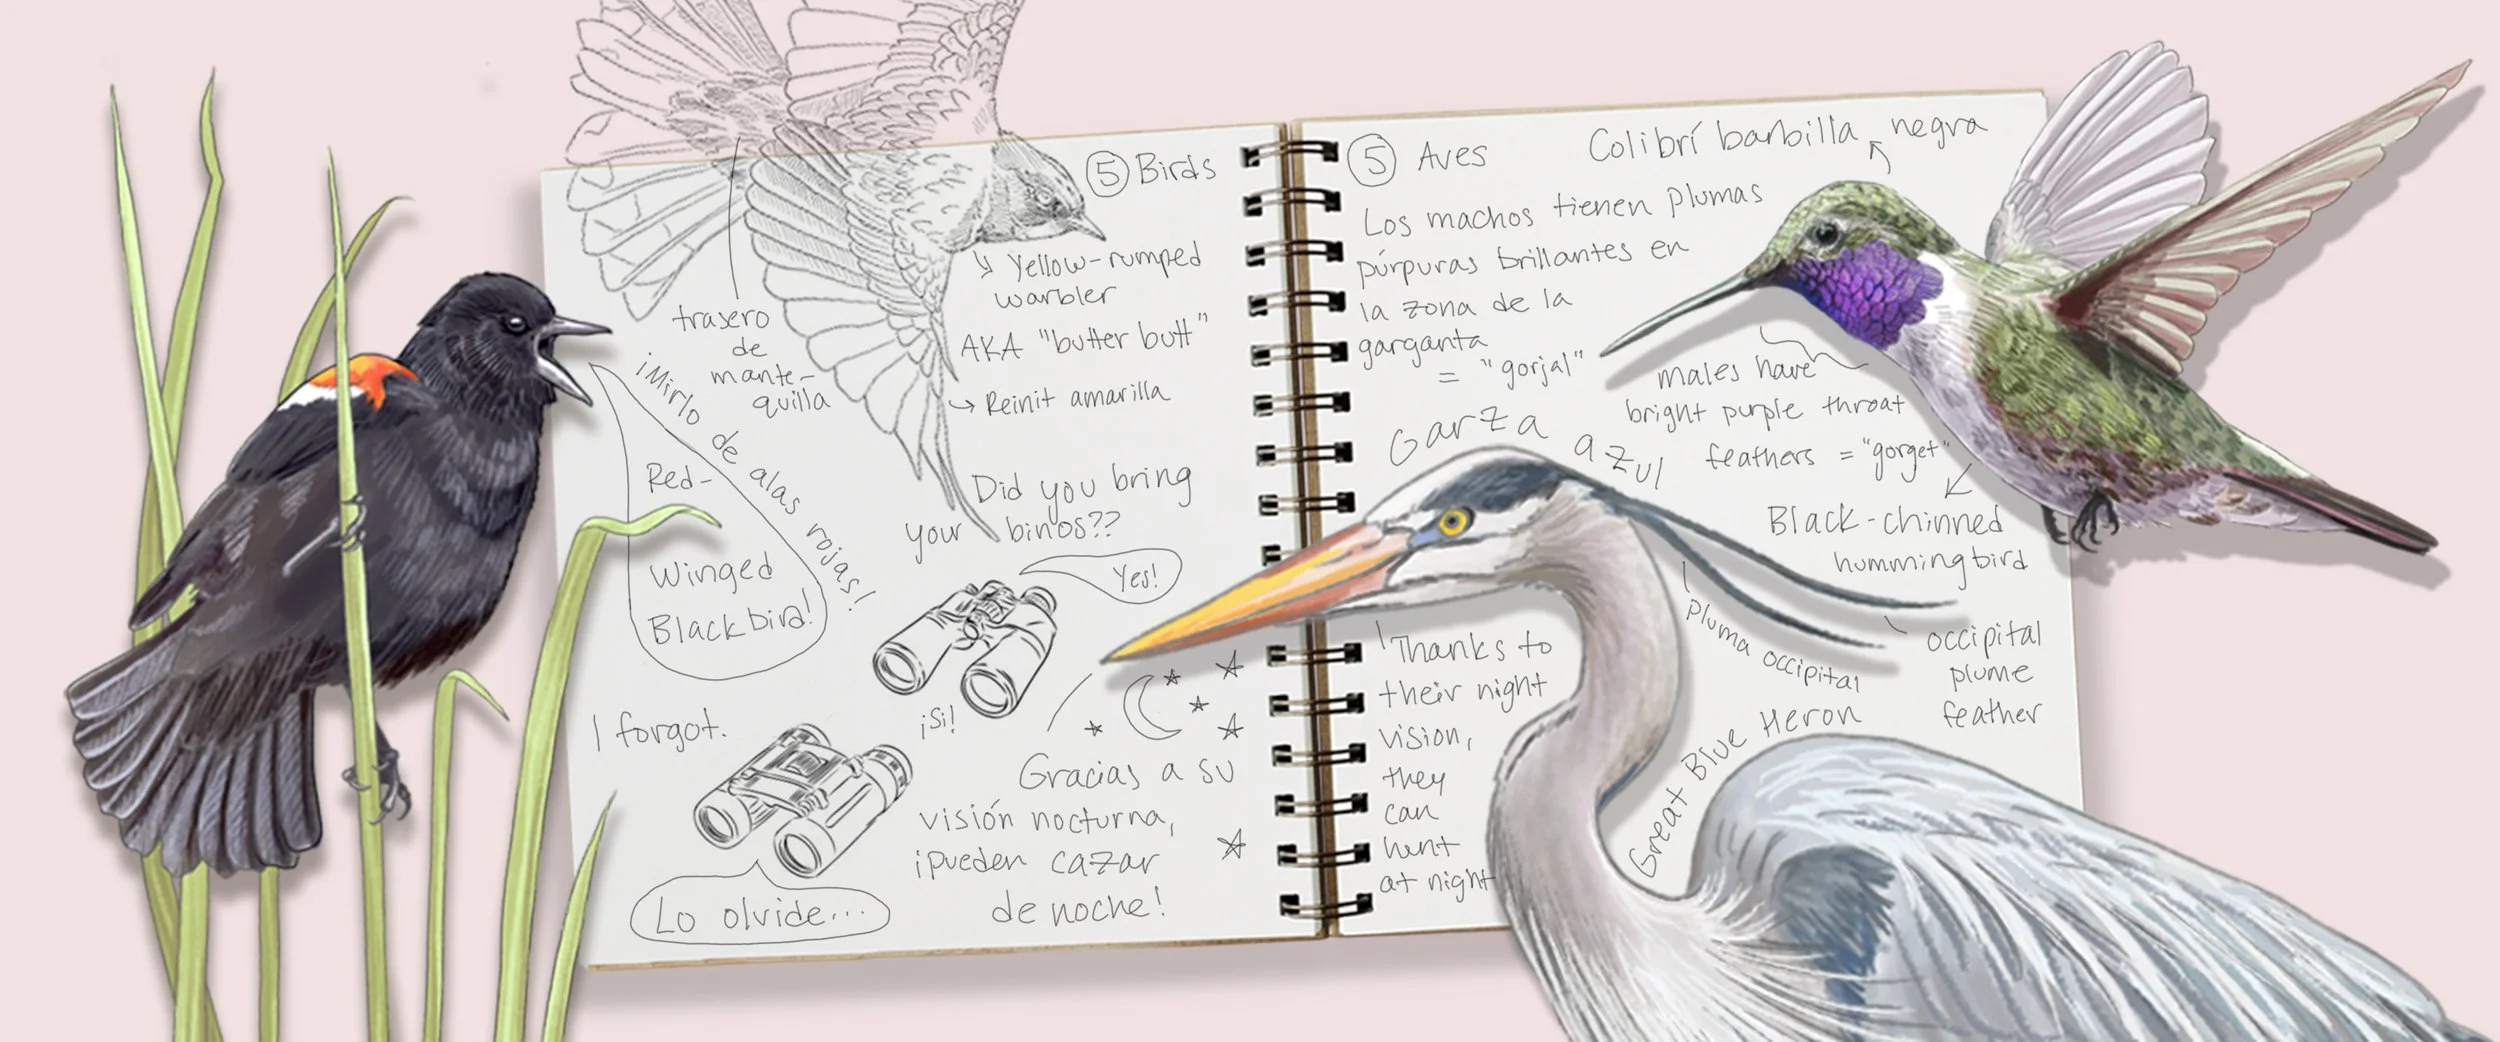 5 Birds
Yellow-rumped
warbler
AKA "butter butt"
Reinit amarilla
trasero
de
mante-
quilla
¡Mirlo de alas rojas!
Red-
Winged
Blackbird!
Did you bring
your binos??
Yes!
¡Si!
I forgot.
Lo olvide...
Gracias a su
visión nocturna,
¡pueden cazar
de noche!
5 Aves
Colibrí barbilla negra
Los machos tienen plumas
púrpuras brillantes en
la zona de la
garganta
= "gorjal"
males have
bright purple throat
feathers = "gorget"
Black-chinned
hummingbird
Garza azul
Pluma occipital
occipital
plume
feather
Great Blue Heron
Thanks to
their night
vision,
they
can
hunt
at night